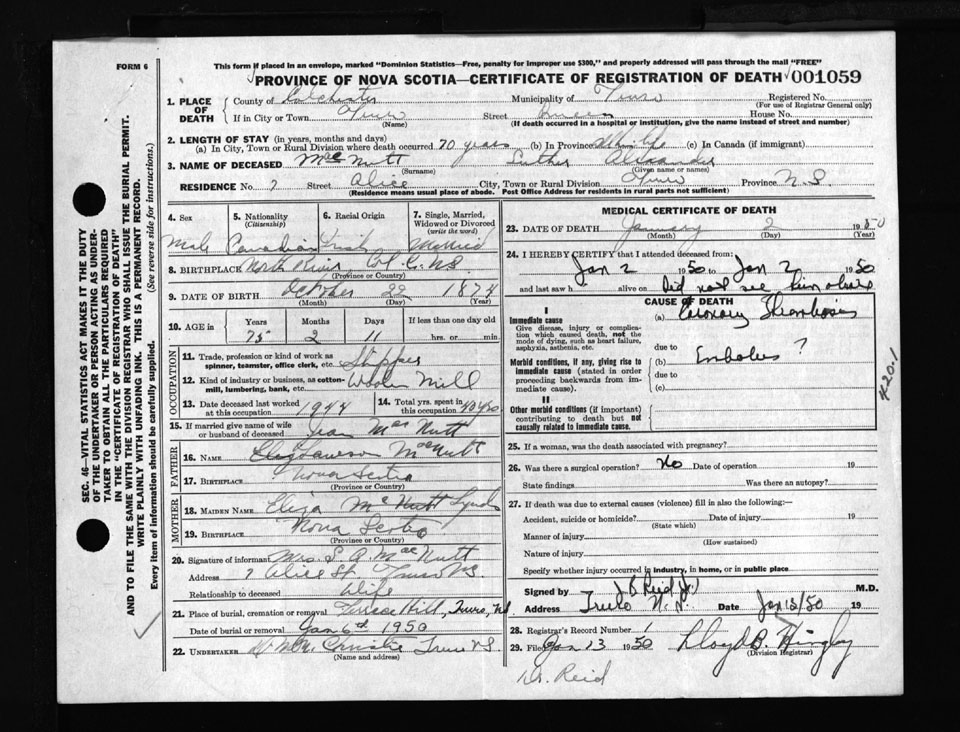 FORM 6
This form if placed in an envelope, marked "Dominion Statistics—Free, penalty for improper use $300," and properly addressed will pass through the mail "FREE"
PROVINCE OF NOVA SCOTIA—CERTIFICATE OF REGISTRATION OF DEATH 001059
1. PLACE OF DEATH County of Colchester Municipality of Truro Registered No.
(For use of Registrar General only)
If in City or Town Truro Street House No.
(Name) (If death occurred in a hospital or institution, give the name instead of street and number)
2. LENGTH OF STAY (in years, months and days)
(a) In City, Town or Rural Division where death occurred 70 years (b) In Province (c) In Canada (if immigrant)
3. NAME OF DECEASED MacNutt Luther Alexander
(Surname) (Given name or names)
RESIDENCE No. 7 Street Alice City, Town or Rural Division Truro Province N.S.
(Residence means usual place of abode. Post Office Address for residents in rural parts not sufficient)
4. Sex Male
5. Nationality (Citizenship) Canadian
6. Racial Origin Irish
7. Single, Married, Widowed or Divorced (write the word) Married
8. BIRTHPLACE North River Col. Co. N.S.
(Province or Country)
9. DATE OF BIRTH October 22 1874
(Month) (Day) (Year)
10. AGE in Years Months Days If less than one day old
75 2 11 hrs. or min.
OCCUPATION
11. Trade, profession or kind of work as spinner, teamster, office clerk, etc. Shipper
12. Kind of industry or business, as cotton-mill, lumbering, bank, etc. Woolen Mill
13. Date deceased last worked at this occupation 1944
14. Total yrs. spent in this occupation
15. If married give name of wife or husband of deceased Jean MacNutt
FATHER
16. Name MacNutt
17. BIRTHPLACE Nova Scotia
(Province or Country)
MOTHER
18. MAIDEN NAME Eliza McNutt Lynds
19. BIRTHPLACE Nova Scotia
(Province or Country)
20. Signature of informant Mrs. L. A. MacNutt
Address 7 Alice St. Truro N.S.
Relationship to deceased Wife
21. Place of burial, cremation or removal Terrace Hill, Truro, N.S.
Date of burial or removal Jan 6th 1950
22. UNDERTAKER Christie Truro N.S.
(Name and address)
MEDICAL CERTIFICATE OF DEATH
23. DATE OF DEATH January 2 1950
(Month) (Day) (Year)
24. I HEREBY CERTIFY that I attended deceased from:
Jan 2 1950 to Jan 2 1950
and last saw h alive on Did not see him alive
CAUSE OF DEATH
I
Immediate cause (a) Coronary Thrombosis
Give disease, injury or complication which caused death, not the mode of dying, such as heart failure, asphyxia, asthenia, etc.
due to
Morbid conditions, if any, giving rise to immediate cause (stated in order proceeding backwards from immediate cause). (b) Embolus ?
due to
(c)
II
Other morbid conditions (if important) contributing to death but not causally related to immediate cause.
4201
25. If a woman, was the death associated with pregnancy?
26. Was there a surgical operation? No Date of operation 19
State findings Was there an autopsy?
27. If death was due to external causes (violence) fill in also the following:—
Accident, suicide or homicide? Date of injury 19
(State which)
Manner of injury
(How sustained)
Nature of injury
Specify whether injury occurred in industry, in home, or in public place
Signed by J B Reid Jr M.D.
Address Truro N.S. Date Jan 13/50 19
28. Registrar's Record Number 1
29. Filed Jan 13 1950 Lloyd B. Hingley
(Division Registrar)
Dr. Reid
SEC. 46—VITAL STATISTICS ACT MAKES IT THE DUTY
OF THE UNDERTAKER OR PERSON ACTING AS UNDER-
TAKER TO OBTAIN ALL THE PARTICULARS REQUIRED
IN THE "CERTIFICATE OF REGISTRATION OF DEATH"
AND TO FILE THE SAME WITH THE DIVISION REGISTRAR WHO SHALL ISSUE THE BURIAL PERMIT.
WRITE PLAINLY WITH UNFADING INK. THIS IS A PERMANENT RECORD.
Every item of information should be carefully supplied. (See reverse side for instructions.)